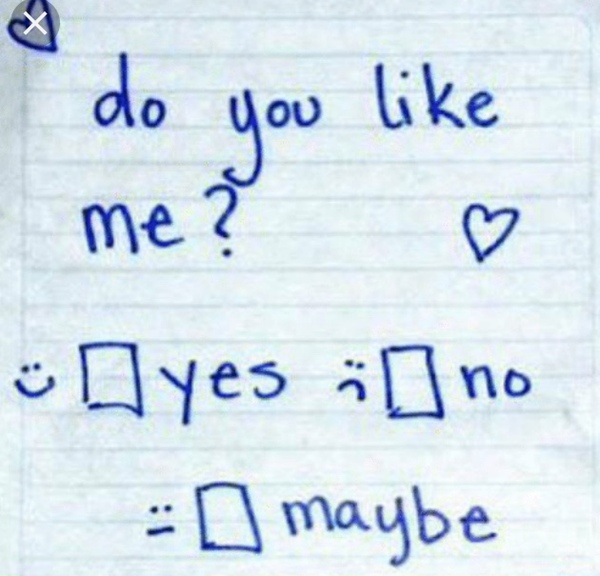 do you like
me? ♡
☐ yes ☐ no
☐ maybe